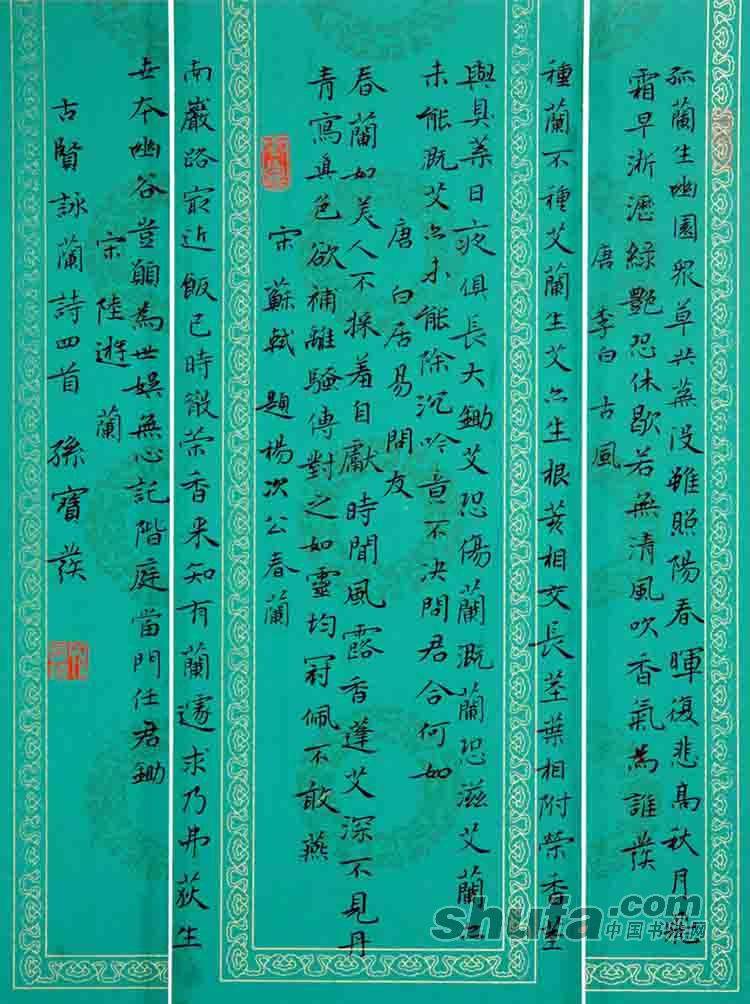 孤蘭生幽園眾草共蕪沒雖照陽春暉復悲高秋月飛
霜早淅瀝綠艷恐休歇若無清風吹香氣為誰發
唐 李白 古風
種蘭不種艾蘭生艾亦生根荄相交長莖葉相附榮香莖
與臭葉日夜俱長大鋤艾恐傷蘭溉蘭恐滋艾蘭亦
未能溉艾亦未能除沉吟意不決問君合何如
唐 白居易 問友
春蘭如美人不採羞自獻時聞風露香蓬艾深不見丹
青寫真色欲補離騷傳對之如靈均冠佩不敢燕
宋 蘇軾 題楊次公春蘭
南巖路最近飯已時散策香來知有蘭遽求乃弗獲生
世本幽谷豈願為世娛無心記階庭當門任君鋤
宋 陸遊 蘭
古賢詠蘭詩四首 孫寶發
shufa.com
中国书法网